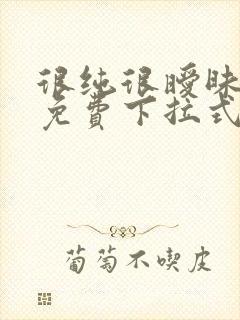 很纯很暧昧
免费下拉式
葡萄不喫皮